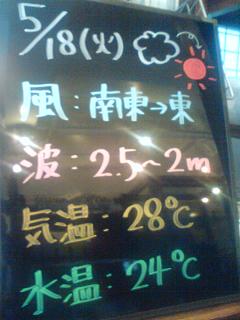 5/18(火)
風:南東→東
波:2.5~2m
気温:28℃
水温:24℃